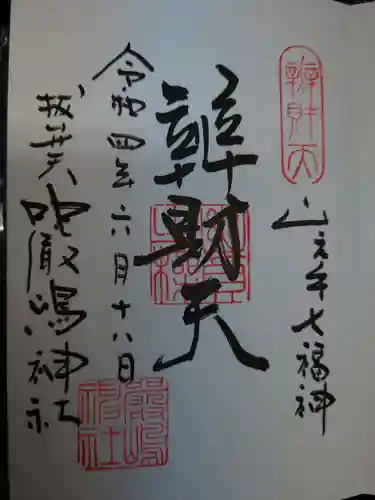 辨財天
山之手七福神
辨財天
令和四年六月十八日
抜弁天 厳嶋神社
嚴嶋神社